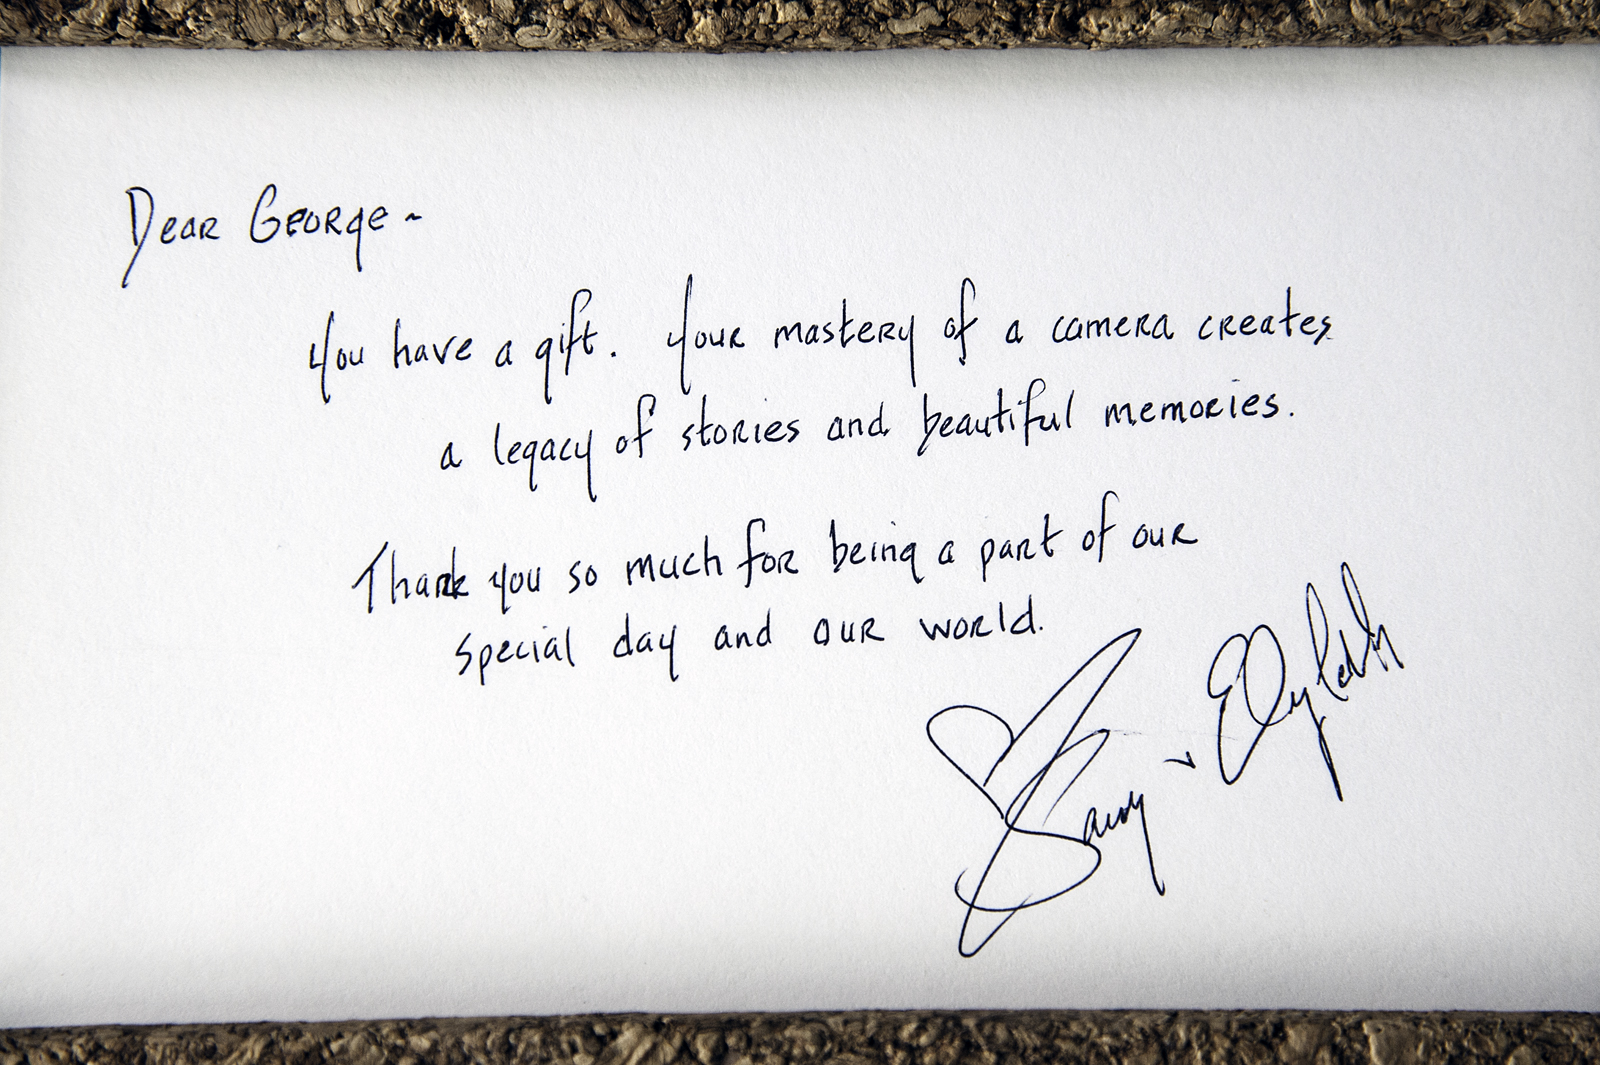 Dear George ~
You have a gift. Your mastery of a camera creates
a legacy of stories and beautiful memories.
Thank you so much for being a part of our
special day and our world.